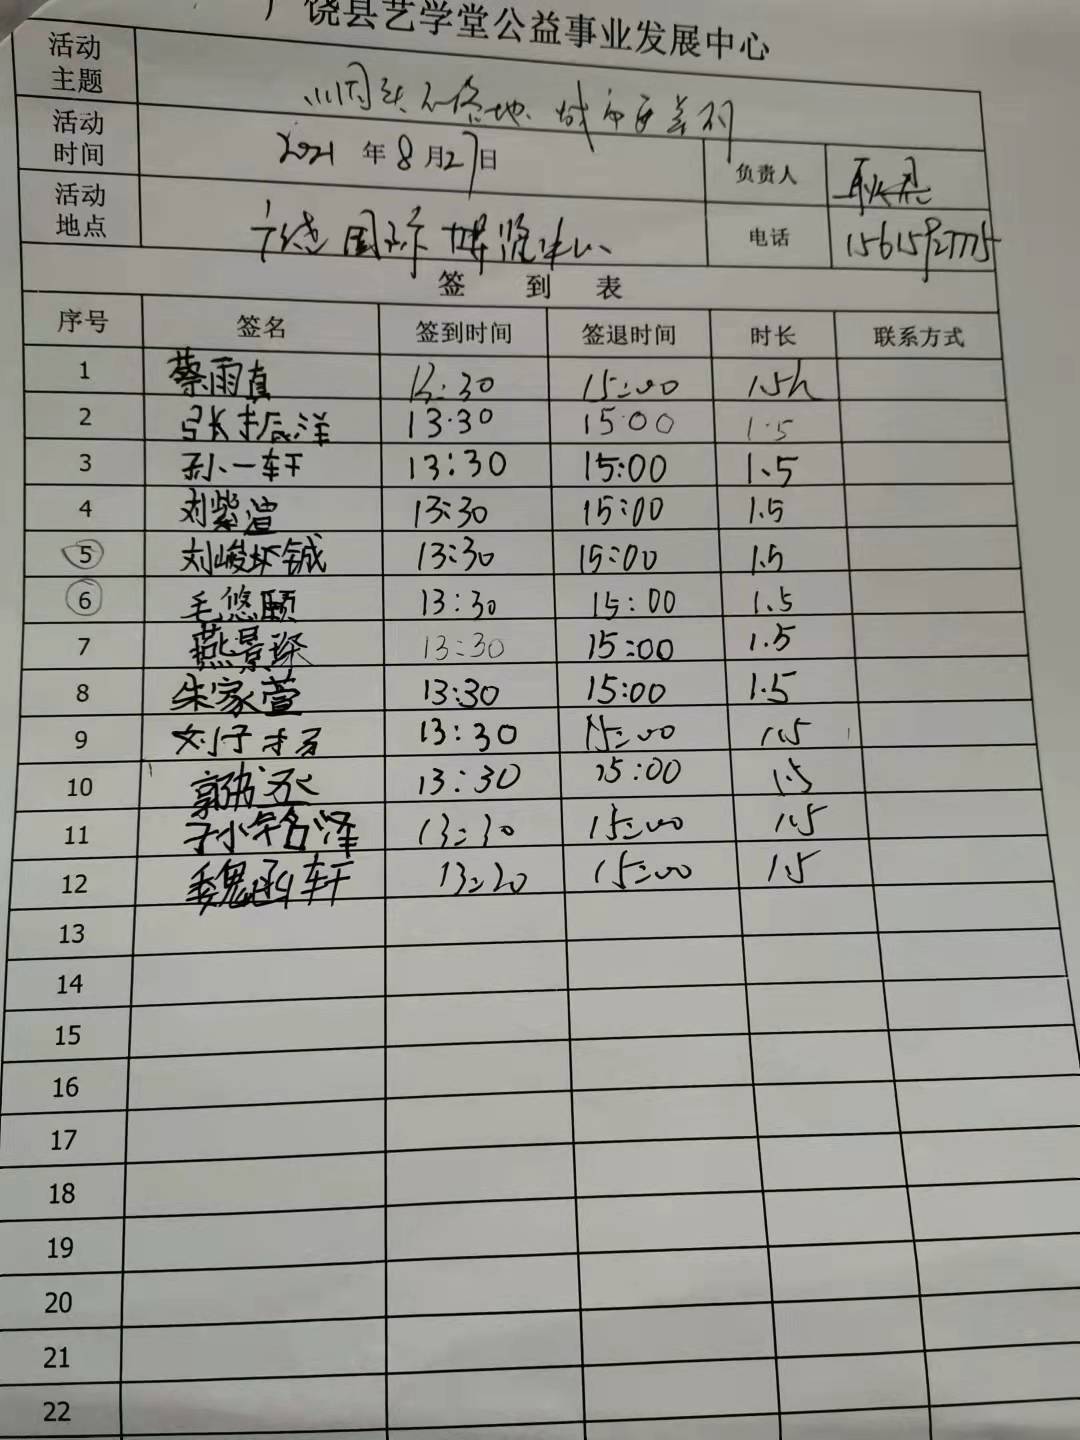 广饶县艺学堂公益事业发展中心
活动主题 烟头不落地 城市更美丽
活动时间 2021 年 8 月 27 日 负责人
活动地点 广饶国际博览中心 电话
签 到 表
序号 签名 签到时间 签退时间 时长 联系方式
1 蔡雨真 13:30 15:00 1.5h
2 张振洋 13:30 15:00 1.5
3 孙一轩 13:30 15:00 1.5
4 刘紫渲 13:30 15:00 1.5
5 13:30 15:00 1.5
6 毛悠颐 13:30 15:00 1.5
7 燕景琛 13:30 15:00 1.5
8 朱家萱 13:30 15:00 1.5
9 13:30 15:00 1.5
10 13:30 15:00 1.5
11 13:30 15:00 1.5
12 魏函轩 13:30 15:00 1.5
13
14
15
16
17
18
19
20
21
22